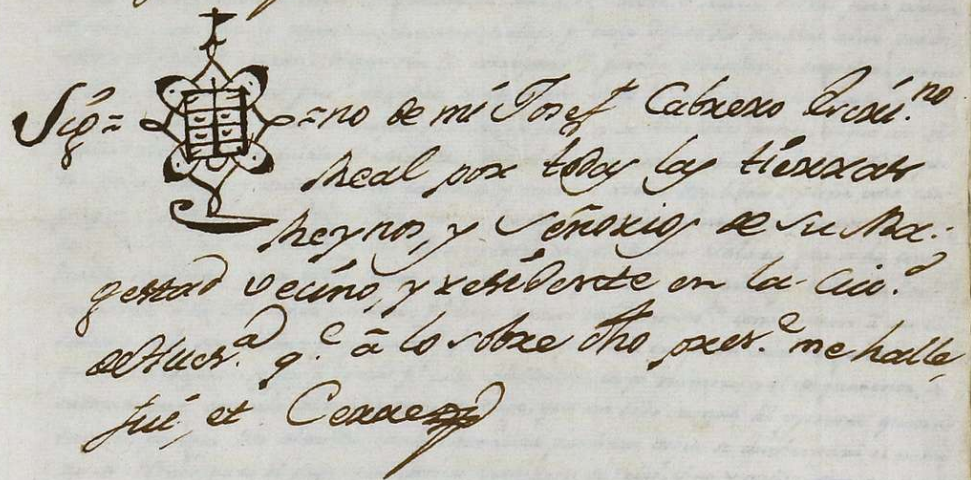 Sig= =no de mi Josef Cabrero Escri.no
Real por todas las tierras
Reynos, y Señorios de Su Ma-
gestad vecino, y residente en la Ciu.d
de Hues.a q.e â lo sobre dho pres.e me halle,
fui, et Cerre